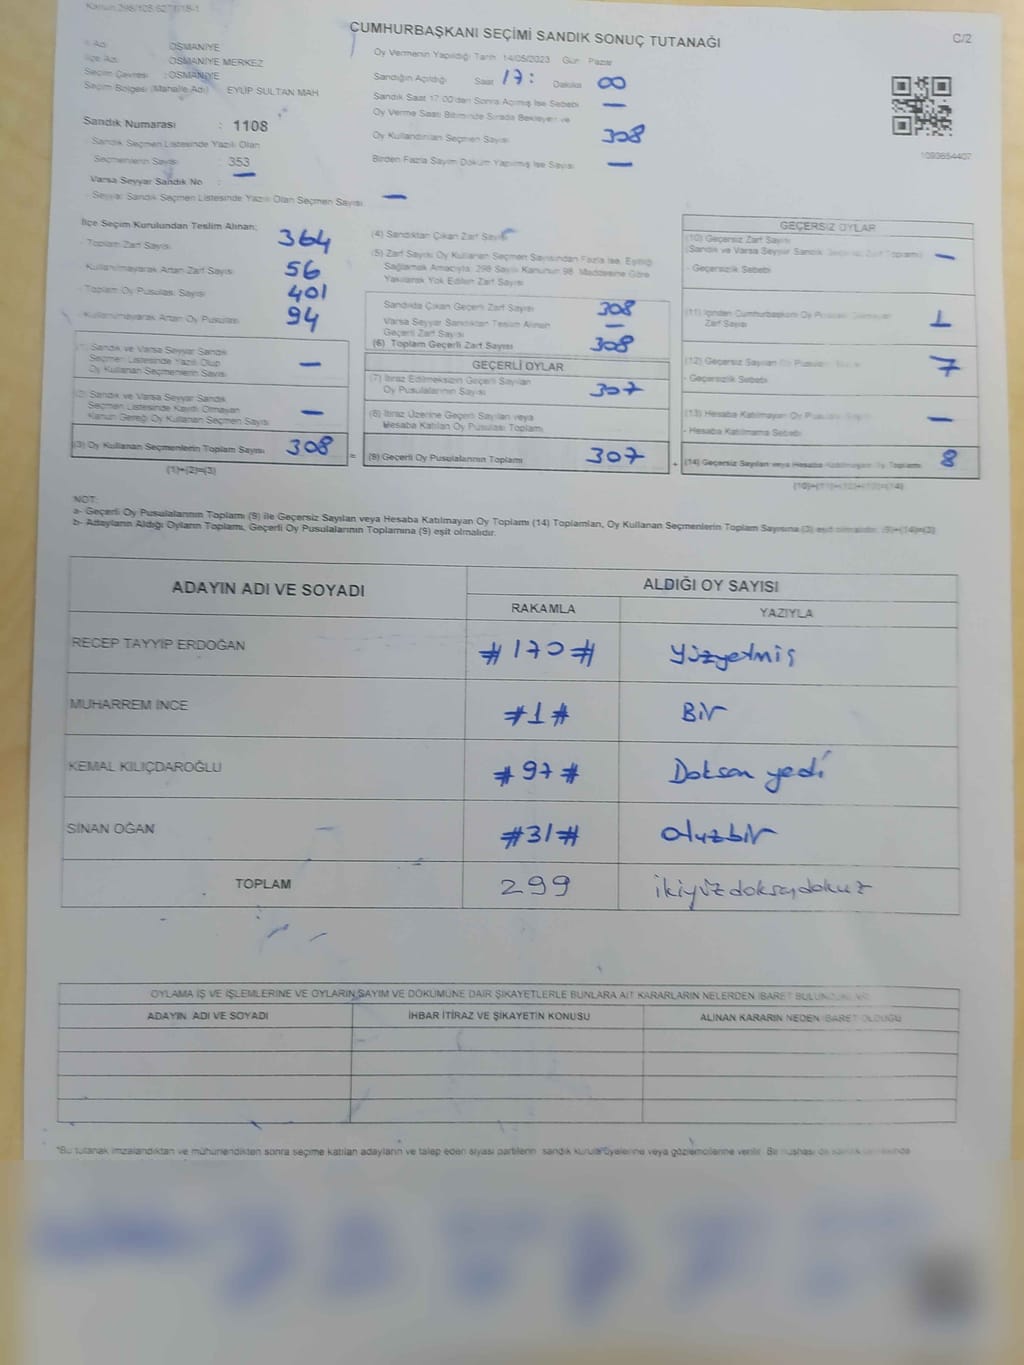 CUMHURBAŞKANI SEÇİMİ SANDIK SONUÇ TUTANAĞI
C/2
İl Adı OSMANİYE
İlçe Adı OSMANİYE MERKEZ
Seçim Çevresi : OSMANİYE
Seçim Bölgesi (Mahalle Adı) EYÜP SULTAN MAH
Sandık Numarası : 1108
Sandık Seçmen Listesinde Yazılı Olan
Seçmenlerin Sayısı : 353
Varsa Seyyar Sandık No : —
Seyyar Sandık Seçmen Listesinde Yazılı Olan Seçmen Sayısı —
Oy Vermenin Yapıldığı Tarih 14/05/2023 Gün Pazar
Sandığın Açıldığı Saat 17: Dakika 00
Sandık Saat 17.00'den Sonra Açılmış İse Sebebi —
Oy Verme Saati Bitiminde Sırada Bekleyen ve
Oy Kullandırılan Seçmen Sayısı 308
Birden Fazla Sayım Döküm Yapılmış İse Sayısı —
1093654407
İlçe Seçim Kurulundan Teslim Alınan;
- Toplam Zarf Sayısı 364
- Kullanılmayarak Artan Zarf Sayısı 56
- Toplam Oy Pusulası Sayısı 401
- Kullanılmayarak Artan Oy Pusulası 94
(1) Sandık ve Varsa Seyyar Sandık
Seçmen Listesinde Yazılı Olup
Oy Kullanan Seçmenlerin Sayısı —
(2) Sandık ve Varsa Seyyar Sandık
Seçmen Listesinde Kaydı Olmayan
Kanun Gereği Oy Kullanan Seçmen Sayısı —
(3) Oy Kullanan Seçmenlerin Toplam Sayısı 308
(1)+(2)=(3)
(4) Sandıktan Çıkan Zarf Sayısı
(5) Zarf Sayısı Oy Kullanan Seçmen Sayısından Fazla İse, Eşitliği
Sağlamak Amacıyla; 298 Sayılı Kanunun 98. Maddesine Göre
Yakılarak Yok Edilen Zarf Sayısı
Sandıkda Çıkan Geçerli Zarf Sayısı 308
Varsa Seyyar Sandıktan Teslim Alınan
Geçerli Zarf Sayısı —
(6) Toplam Geçerli Zarf Sayısı 308
GEÇERLİ OYLAR
(7) İtiraz Edilmeksizin Geçerli Sayılan
Oy Pusulalarının Sayısı 307
(8) İtiraz Üzerine Geçerli Sayılan veya
Hesaba Katılan Oy Pusulası Toplamı
(9) Geçerli Oy Pusulalarının Toplamı 307
GEÇERSİZ OYLAR
(10) Geçersiz Zarf Sayısı
(Sandık ve Varsa Seyyar Sandık Geçersiz Zarf Toplamı) —
- Geçersizlik Sebebi
(11) İçinden Cumhurbaşkanı Oy Pusulası Çıkmayan
Zarf Sayısı 1
(12) Geçersiz Sayılan Oy Pusulası Sayısı 7
- Geçersizlik Sebebi
(13) Hesaba Katılmayan Oy Pusulası Sayısı —
- Hesaba Katılmama Sebebi
(14) Geçersiz Sayılan veya Hesaba Katılmayan Oy Toplamı 8
(10)+(11)+(12)+(13)=(14)
NOT:
a- Geçerli Oy Pusulalarının Toplamı (9) ile Geçersiz Sayılan veya Hesaba Katılmayan Oy Toplamı (14) Toplamları, Oy Kullanan Seçmenlerin Toplam Sayısına (3) eşit olmalıdır. (9)+(14)=(3)
b- Adayların Aldığı Oyların Toplamı, Geçerli Oy Pusulalarının Toplamına (9) eşit olmalıdır.
ADAYIN ADI VE SOYADI ALDIĞI OY SAYISI
RAKAMLA YAZIYLA
RECEP TAYYİP ERDOĞAN #170# Yüzyetmiş
MUHARREM İNCE #1# Bir
KEMAL KILIÇDAROĞLU #97# Doksan yedi
SİNAN OĞAN #31# otuzbir
TOPLAM 299 ikiyüzdoksandokuz
OYLAMA İŞ VE İŞLEMLERİNE VE OYLARIN SAYIM VE DÖKÜMÜNE DAİR ŞİKAYETLERLE BUNLARA AİT KARARLARIN NELERDEN İBARET BULUNDUKLARI
ADAYIN ADI VE SOYADI İHBAR İTİRAZ VE ŞİKAYETİN KONUSU ALINAN KARARIN NEDEN İBARET OLDUĞU
*Bu tutanak imzalandıktan ve mühürlendikten sonra seçime katılan adayların ve talep eden siyasi partilerin sandık kurulu üyelerine veya gözlemcilerine verilir. Bir nüshası da